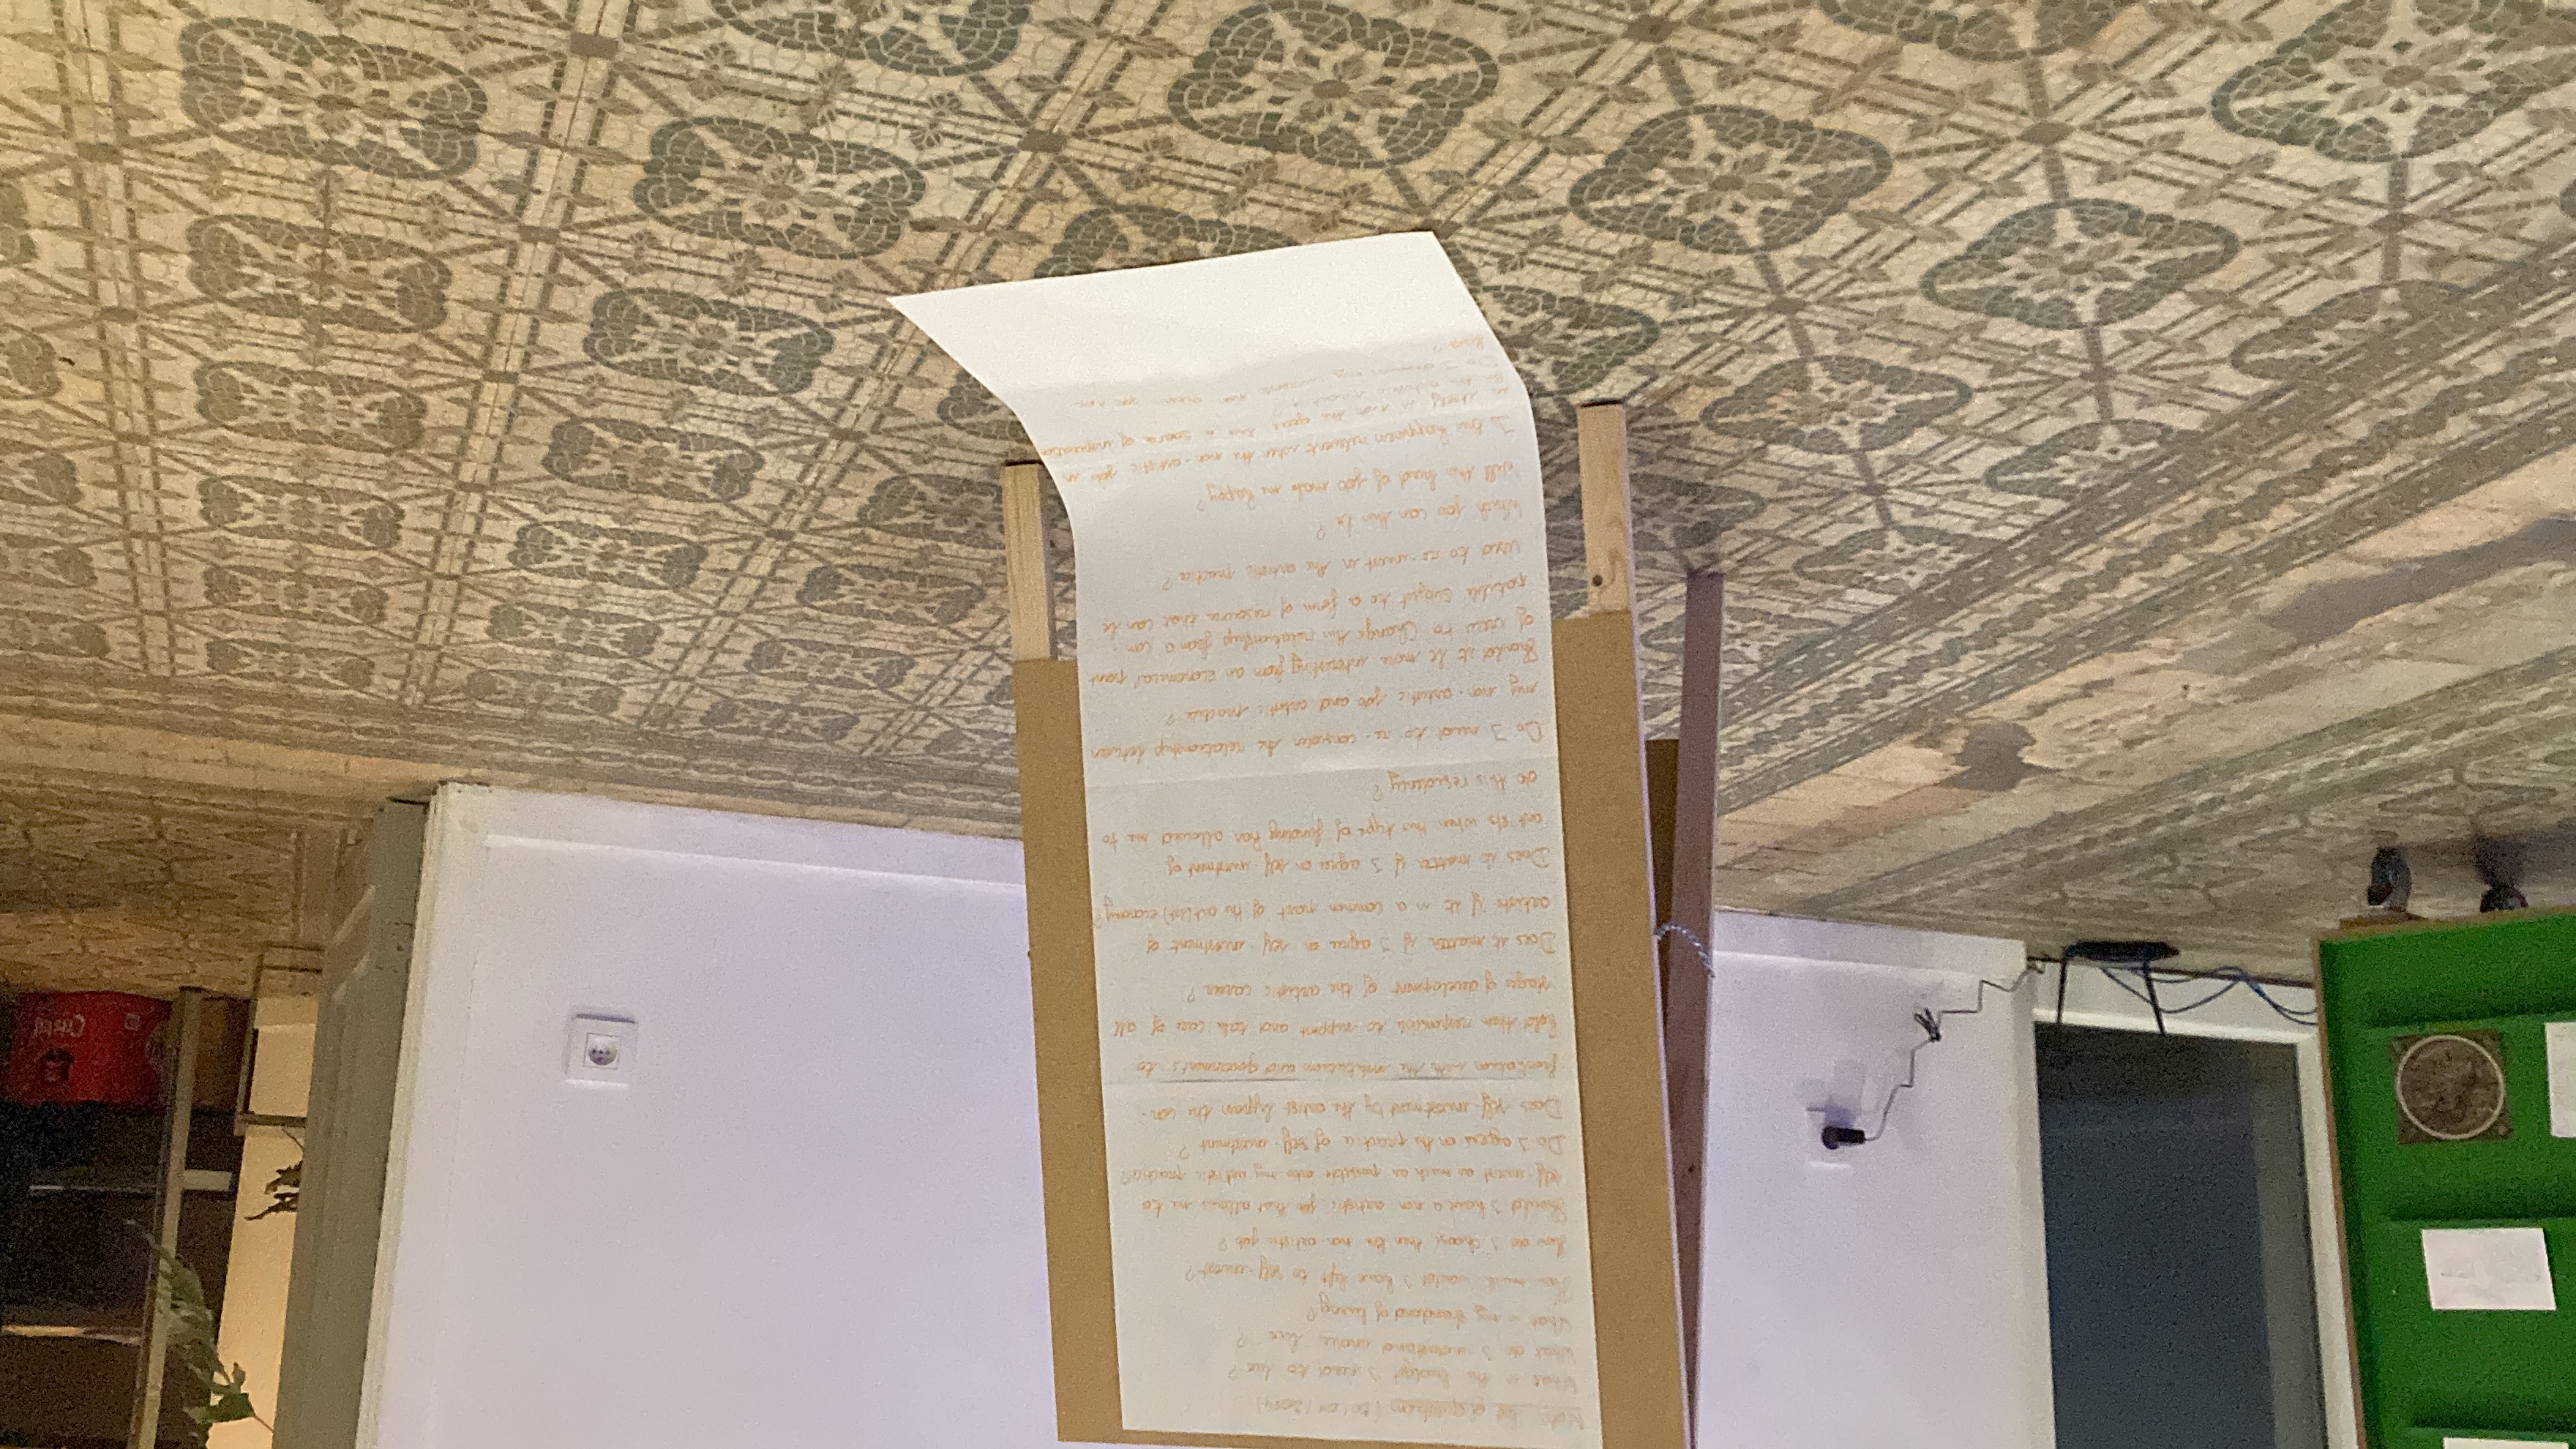 list of questions
What is the budget I need to live?
What do I understand under live?
What is my standard of living?
How much would I have left to self-invest?
How do I choose then the non artistic job?
Should I have a non artistic job that allows me to
self invest as much as possible into my artistic practice?
Do I agree on the practice of self-investment?
Does self-investment by the artist bypass the con-
frontation with the institution and governments to
hold them responsible to support and take care of all
stages of development of the artistic career?
Does it matter if I agree on self-investment of
artists if it is a common part of the art(ist) economy?
Does it matter if I agree on self-investment of
artists when this type of funding has allowed me to
do this residency?
Do I need to re-consider the relationship between
my non-artistic job and artistic practice?
Should it be more interesting from an economical point
of view to change this relationship from a com-
patible subject to a form of resource that can be
used to re-invest in the artistic practice?
Which job can this be?
Will this kind of job make me happy?
Is this happiness relevant when the non-artistic job in
itself is not the goal but a source of
for the artistic practice?